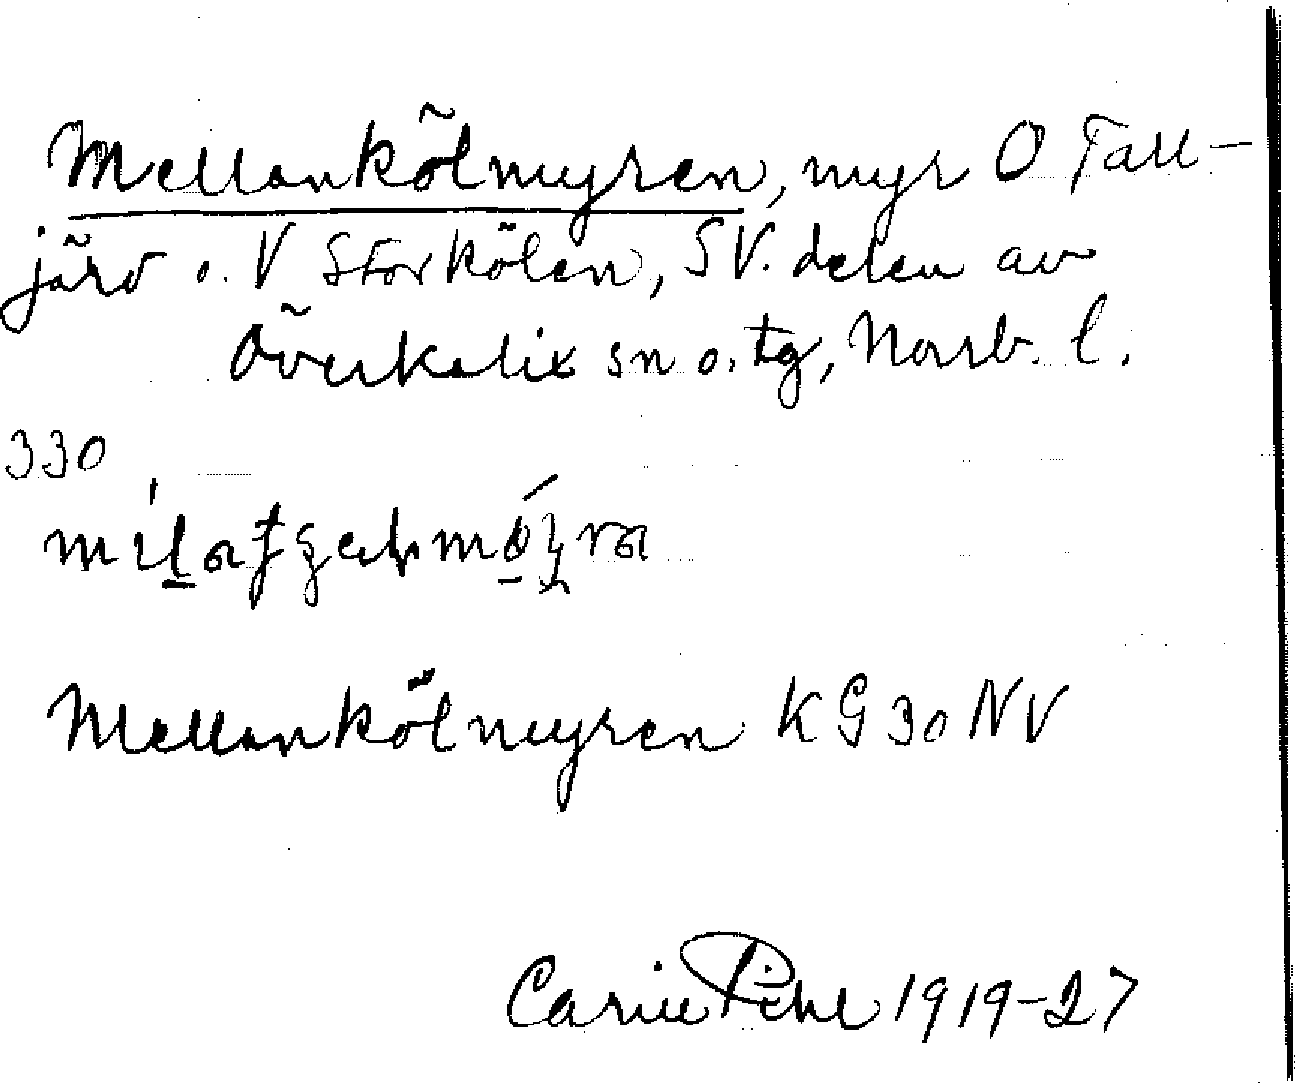 Mellankölmyren, myr O Tall-
järv o. V Storkölen, SV. delen av
Överkalix sn o. tg, Norrb. l.
330
Mellankölmyren KG 30 NV
Carin Pihl 1919-27